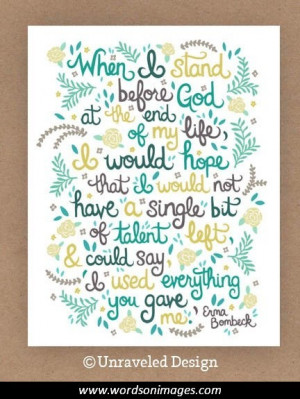 When I stand
before God
at the end
of my life,
I would hope
that I would not
have a single bit
of talent left
& could say
I used everything
you gave
me. Erma
Bombeck
© Unraveled Design
www.wordsonimages.com